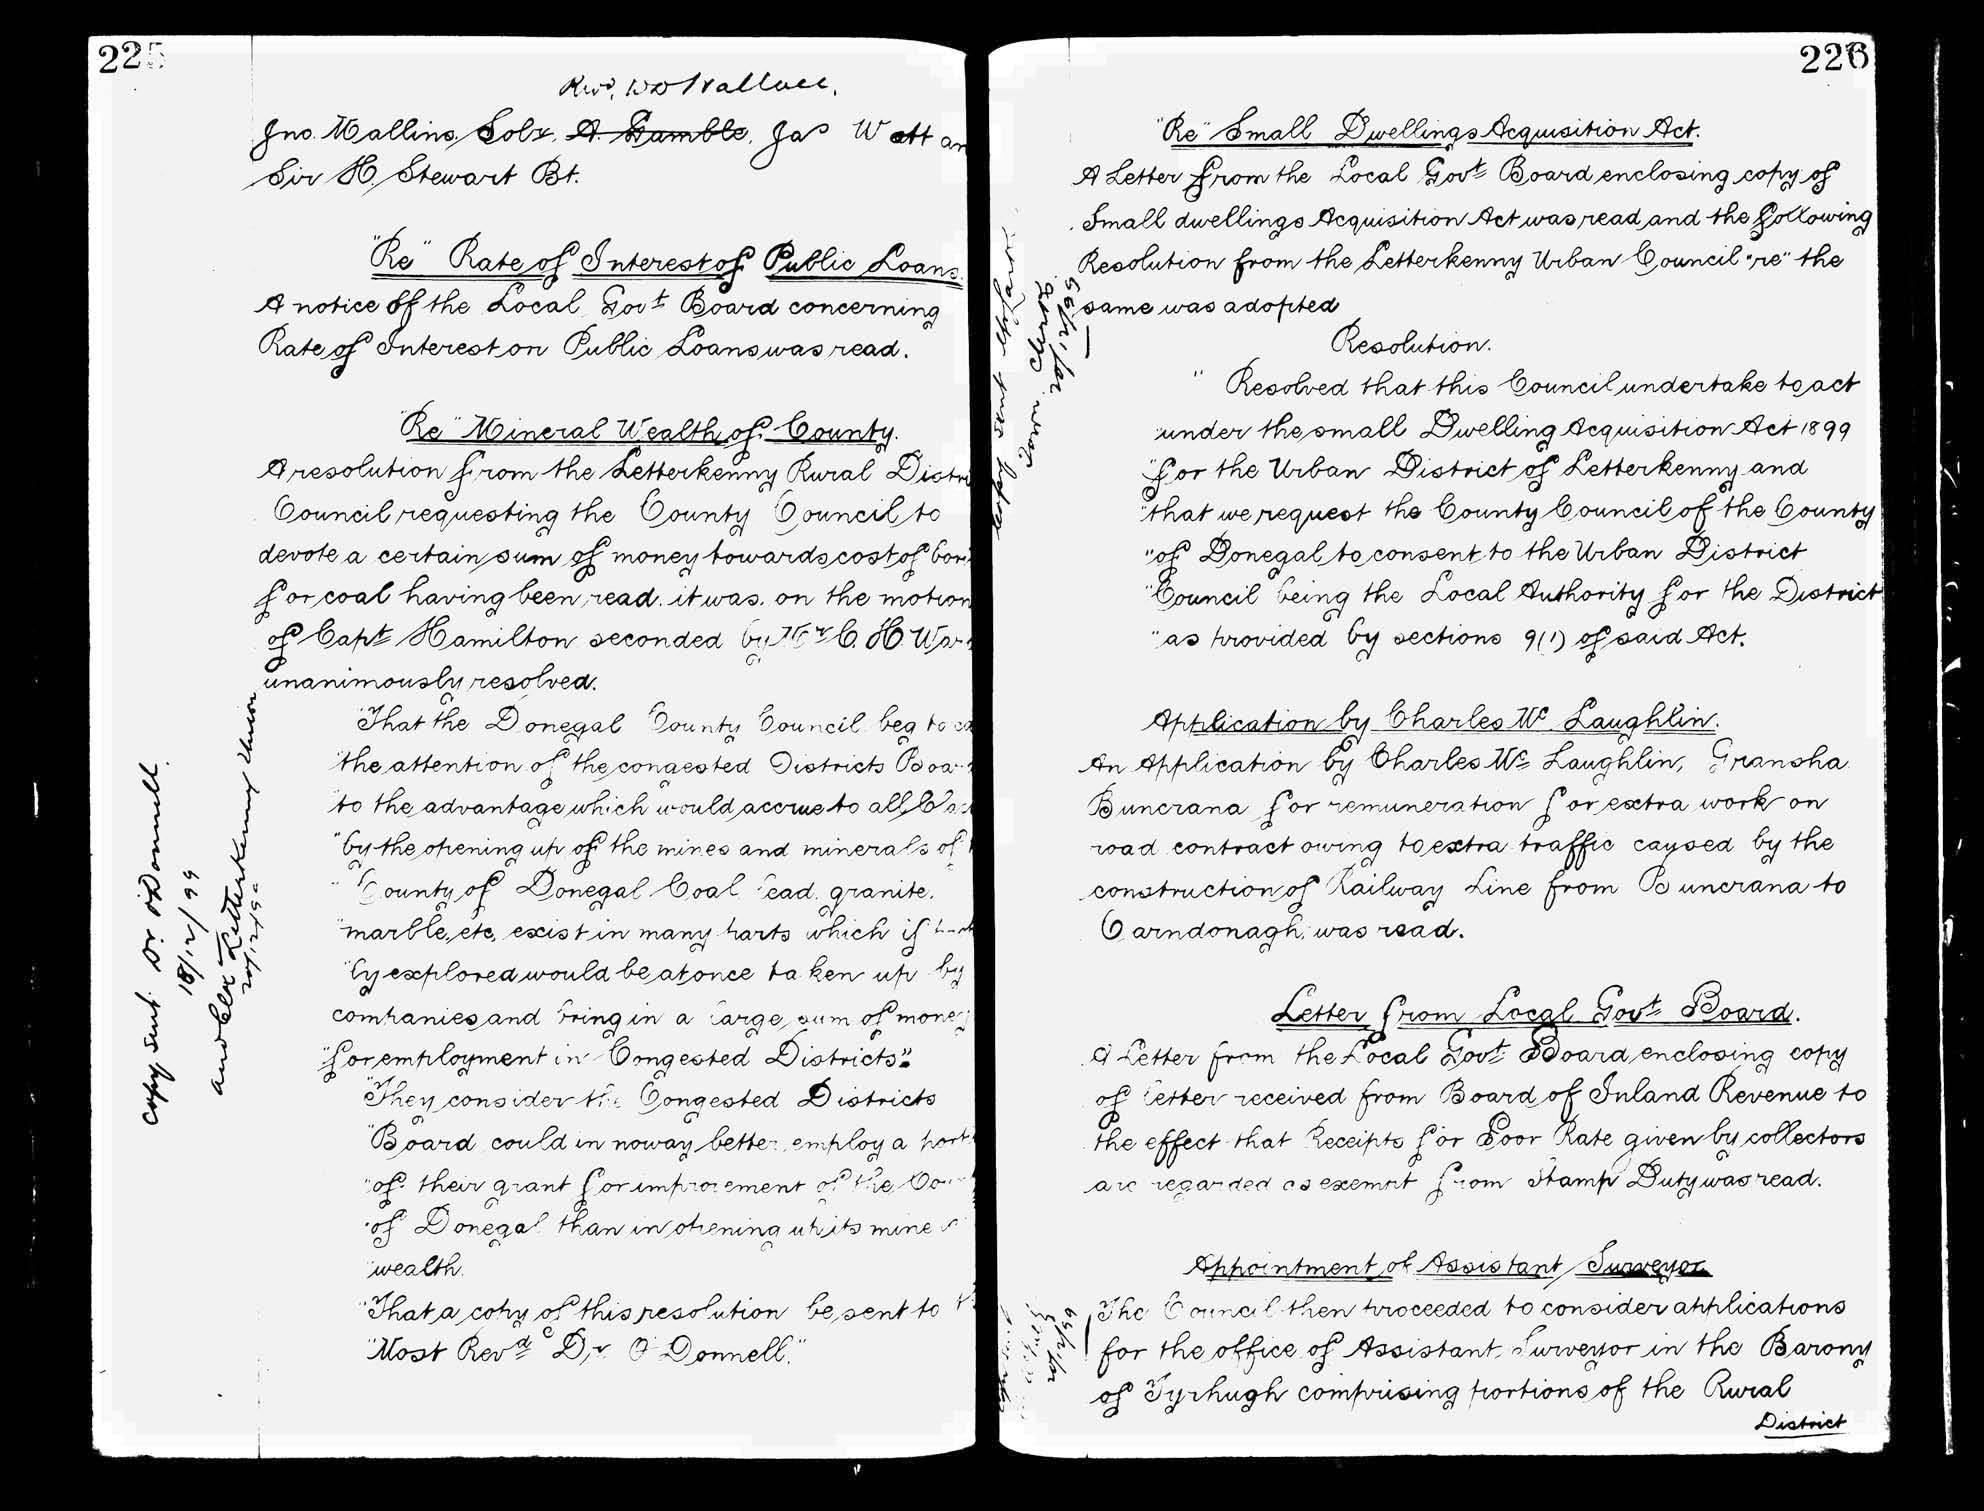 225
Revd. W D Wallace,
Jno. Mallins, Solr. A. Gamble, Jas Watt an
Sir H. Stewart Bt.
"Re" Rate of Interest of Public Loans.
A notice of the Local Govt Board concerning
Rate of Interest on Public Loans was read.
"Re" Mineral Wealth of County.
A resolution from the Letterkenny Rural Distri
Council requesting the County Council to
devote a certain sum of money towards cost of bor
for coal having been read. it was. on the motion
of Capt Hamilton seconded by Mr C. H. W
unanimously resolved.
"That the Donegal County Council beg to ca
"the attention of the congested Districts Boa
"to the advantage which would accrue to all
"by the opening up of the mines and minerals of
" County of Donegal Coal lead granite.
"marble, etc, exist in many parts which if
"ly explored would be at once taken up by
companies and bring in a large sum of money
"for employment in Congested Districts".
"They consider the Congested Districts
"Board could in no way better employ a port
"of their grant for improvement of the Cou
"of Donegal than in opening up its mine
"wealth.
"That a copy of this resolution be sent to t
"Most Revd Dr O'Donnell."
Copy sent Dr. O'Donnell.
18/12/99
another Letterkenny Union
20/12/99
226
"Re" Small Dwellings Acquisition Act.
A Letter from the Local Govt Board enclosing copy of
Small dwellings Acquisition Act was read and the following
Resolution from the Letterkenny Urban Council "re" the
same was adopted
Resolution.
" Resolved that this Council undertake to act
"under the small Dwelling Acquisition Act 1899
"for the Urban District of Letterkenny and
"that we request the County Council of the County
"of Donegal to consent to the Urban District
"Council being the Local Authority for the District
"as provided by sections 9(1) of said Act.
Application by Charles Mc Laughlin.
An Application by Charles Mc Laughlin, Gransha
Buncrana for remuneration for extra work on
road contract owing to extra traffic caused by the
construction of Railway Line from Buncrana to
Carndonagh, was read.
Letter from Local Govt Board.
A Letter from the Local Govt Board enclosing copy
of letter received from Board of Inland Revenue to
the effect that Receipts for Poor Rate given by collectors
are regarded as exempt from Stamp Duty was read.
Appointment of Assistant Surveyor
The Council then proceeded to consider applications
for the office of Assistant Surveyor in the Barony
of Tyrhugh comprising portions of the Rural
District
Copy sent